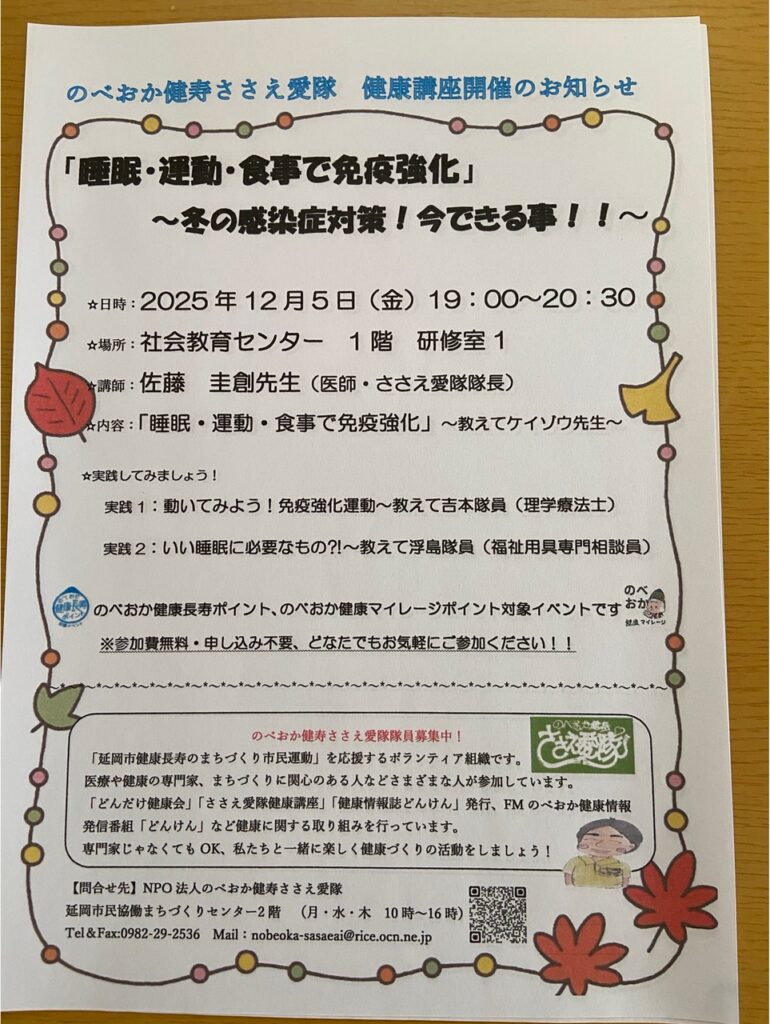 のべおか健寿ささえ愛隊　健康講座開催のお知らせ
「睡眠・運動・食事で免疫強化」
～冬の感染症対策！今できる事！！～
☆日時：2025年12月5日（金）19：00～20：30
☆場所：社会教育センター　1階　研修室1
☆講師：佐藤　圭創先生（医師・ささえ愛隊隊長）
☆内容：「睡眠・運動・食事で免疫強化」～教えてケイゾウ先生～
☆実践してみましょう！
実践1：動いてみよう！免疫強化運動～教えて吉本隊員（理学療法士）
実践2：いい睡眠に必要なもの?!～教えて浮島隊員（福祉用具専門相談員）
健康長寿
ポイント
のべおか健康長寿ポイント、のべおか健康マイレージポイント対象イベントです
のべ
おか
健康マイレージ
※参加費無料・申し込み不要、どなたでもお気軽にご参加ください！！
のべおか健寿ささえ愛隊隊員募集中！
のべおか健寿
ささえ愛隊
「延岡市健康長寿のまちづくり市民運動」を応援するボランティア組織です。
医療や健康の専門家、まちづくりに関心のある人などさまざまな人が参加しています。
「どんだけ健康会」「ささえ愛隊健康講座」「健康情報誌どんけん」発行、FMのべおか健康情報
発信番組「どんけん」など健康に関する取り組みを行っています。
専門家じゃなくてもOK、私たちと一緒に楽しく健康づくりの活動をしましょう！
【問合せ先】NPO法人のべおか健寿ささえ愛隊
延岡市民協働まちづくりセンター2階　（月・水・木　10時～16時）
Tel＆Fax:0982-29-2536　Mail：nobeoka-sasaeai@rice.ocn.ne.jp